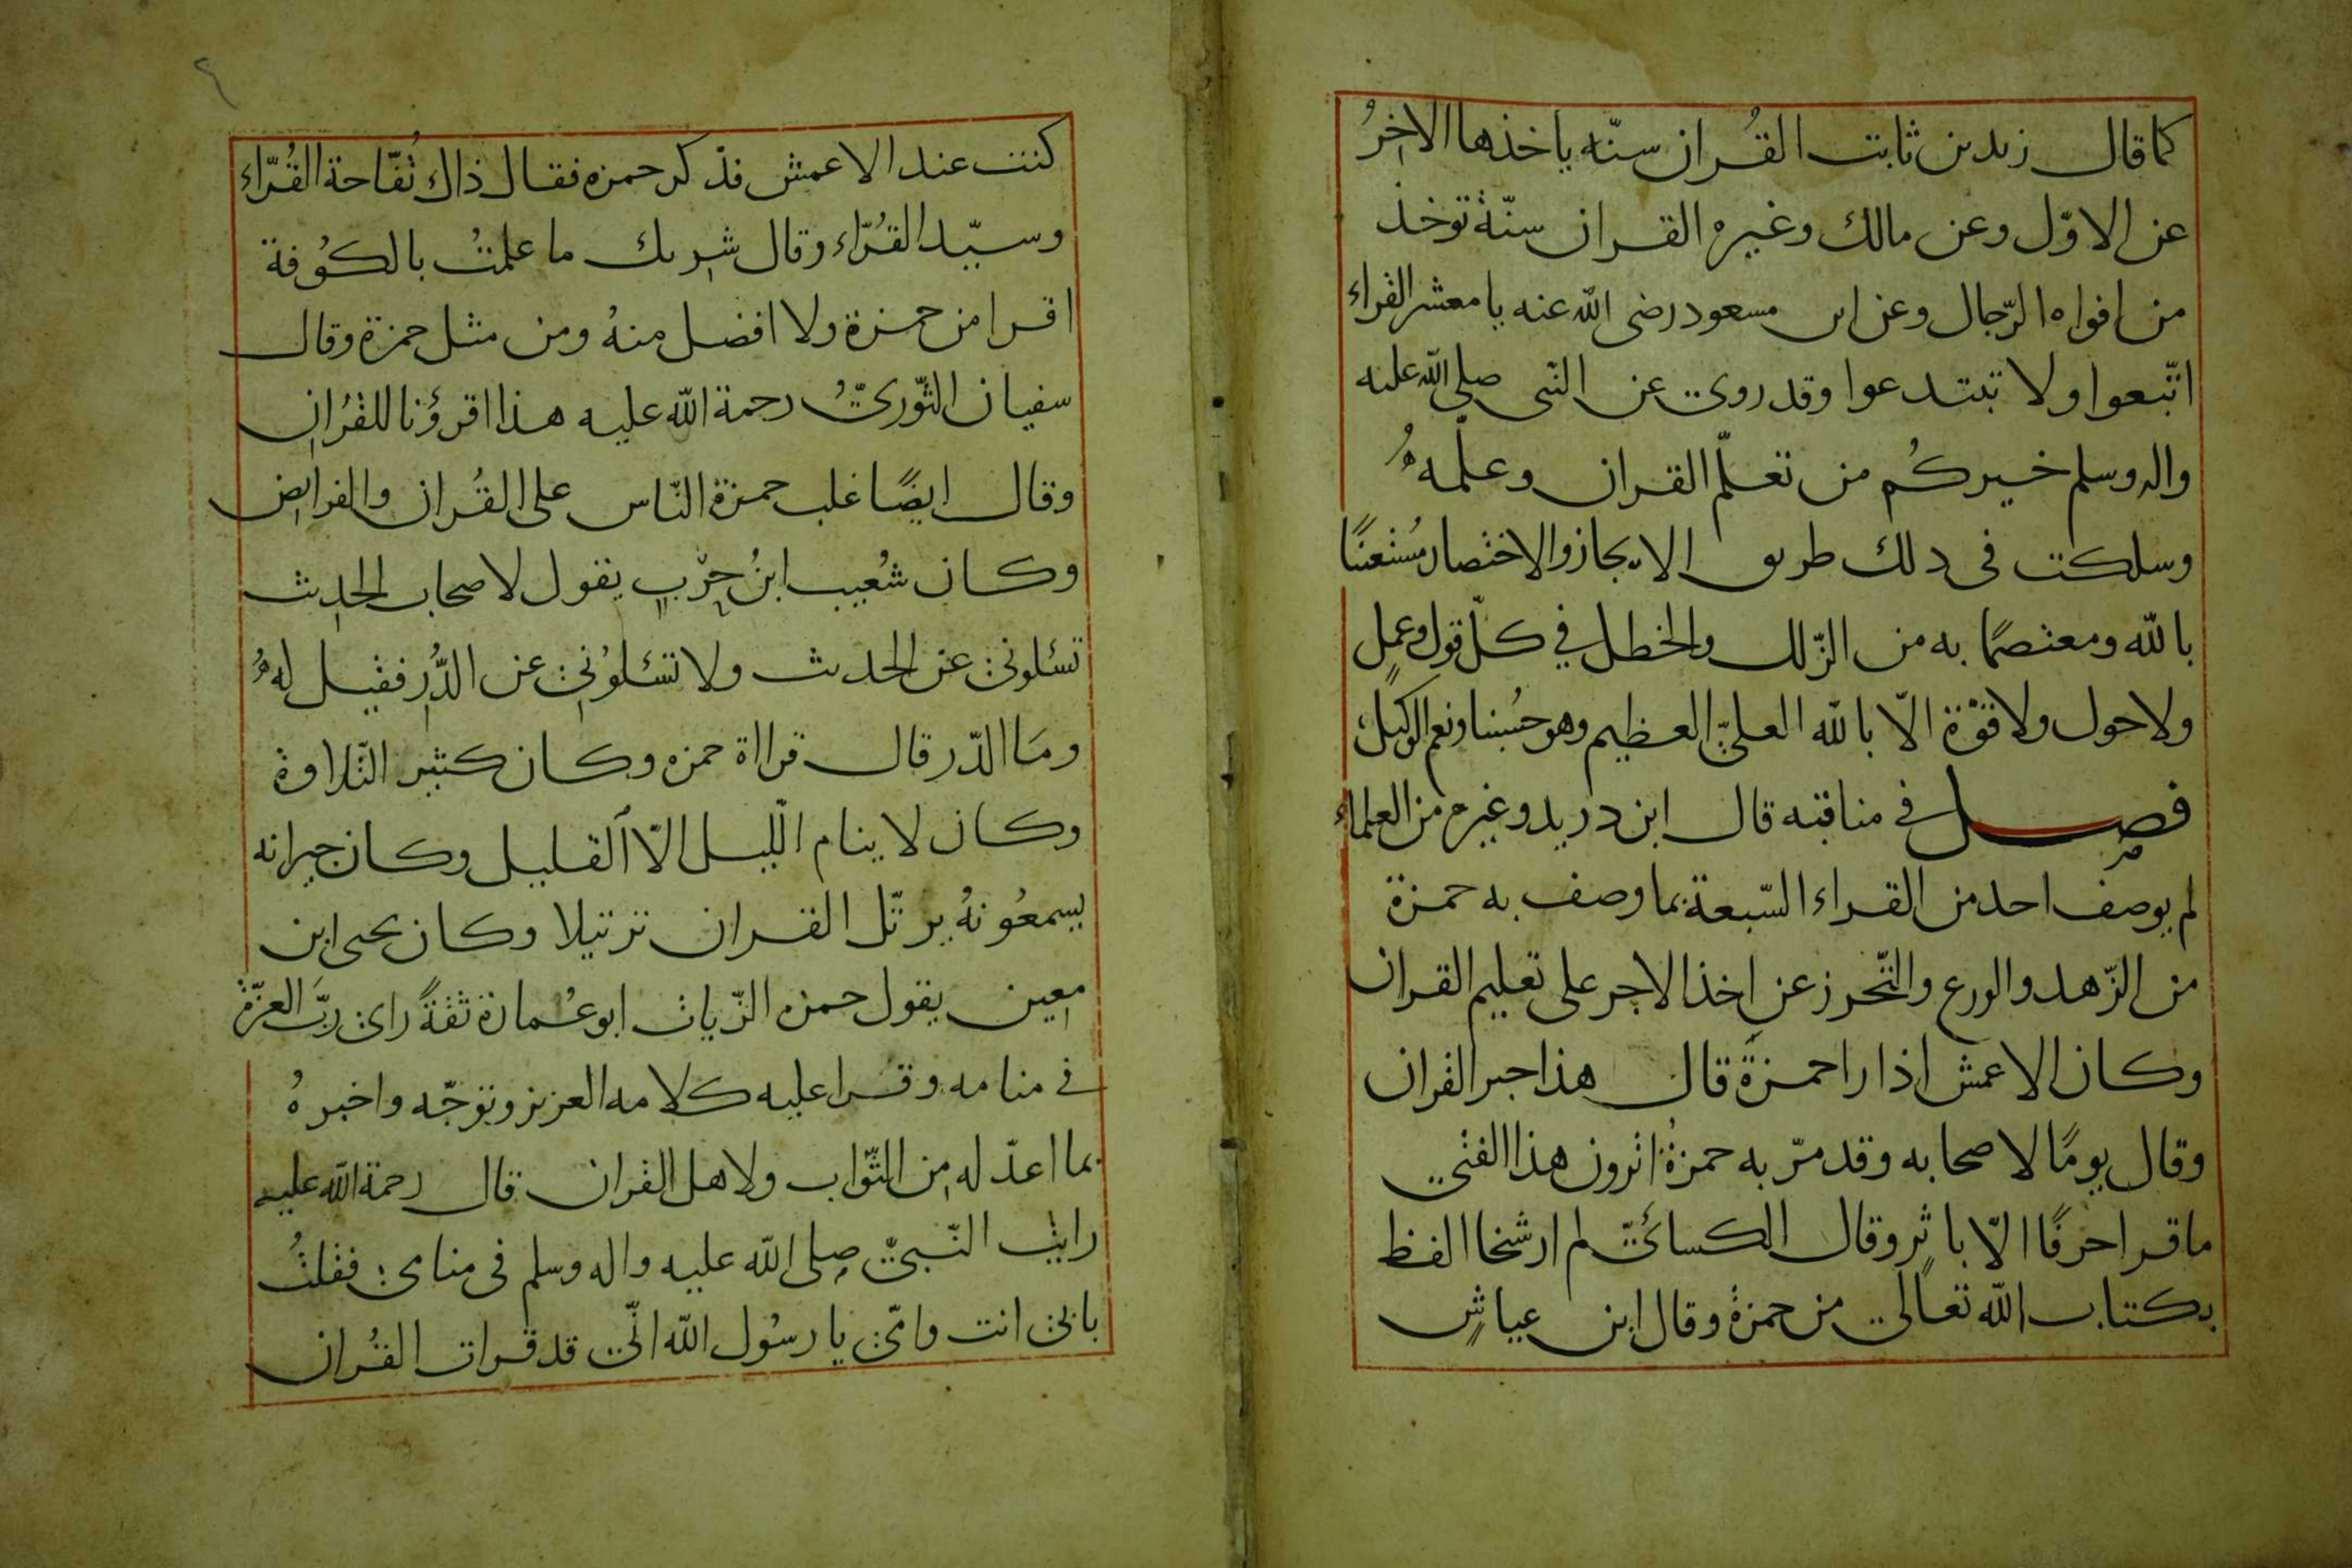 كما قال زيد بن ثابت القُران سنّه ياخذها الاخِرُ
عن الاوّل وعن مالك وغيره القران سنّة توخذ
من افواه الرّجال وعن ابن مسعود رضى الله عنه يا معشر القراء
اتّبعوا ولا تبتدعوا وقد روى عن النّبى صلى الله عليه
واله وسلم خيركُم من تعلّم القران وعلّمهُ
وسلكت فى ذلك طريق الايجاز والاختصار مُستعينًا
بالله ومعتصمًا به من الزّلل والخطل في كلّ قول وعملٍ
ولا حول ولا قوّة الّا بالله العلىّ العظيم وهو حسُبنا ونعم الوكيل
فصل في مناقبه قال ابن دريد وغيره من العلماء
لم يوصف احد من القراء السّبعة بما وصف به حمزة
من الزّهد والورع والتّحرز عن اخذ الاجر على تعليم القران
وكان الاعمش اذا را حمزةَ قال هذا حبر القران
وقال يومًا لاصحابه وقد مرّ به حمزةُ اترون هذا الفتى
ما قرا حرفًا الّا باثرٍ وقال الكسائىّ لم ار شخا الفظ
بكتاب الله تعالى من حمزة وقال ابن عياشٍ
كنت عند الاعمش فذكر حمزه فقال ذاك تُفّاحة القُرّاء
وسيّد القُرّاء وقال شريك ما علمتُ بالكُوفة
اقرا من حمزة ولا افضل منهُ ومن مثل حمزة وقال
سفيان الثّورىّ رحمة الله عليه هذا اقرؤنا للقُران
وقال ايضًا غلب حمزة النّاس على القُران والفرايض
وكان شُعيب ابنُ حرْبٍ يقول لاصحاب الحديث
تسئلونى عن الحديث ولا تسئلوُنى عن الدُّر فقيل لهُ
ومَا الدّر قال قرااة حمزه وكان كثير التّلاوة
وكان لا ينام اللّيل الّا القليل وكان جيرانه
يسمعُونهُ يرتّل القران ترتيلا وكان يحيى ابن
معين يقول حمزه الزّيات ابو عُمارة ثقةً راى ربَّ العزّة
فى منامه وقرا عليه كلامه العزيز وتوجّه واخبرهُ
بما اعدّ له من الثّواب ولاهل القران قال رحمة الله عليه
رايت النّبىّ صلى الله عليه واله وسلم فى منامى فقلتُ
بابى انت وامّى يا رسُول الله انّى قد قرات القُران